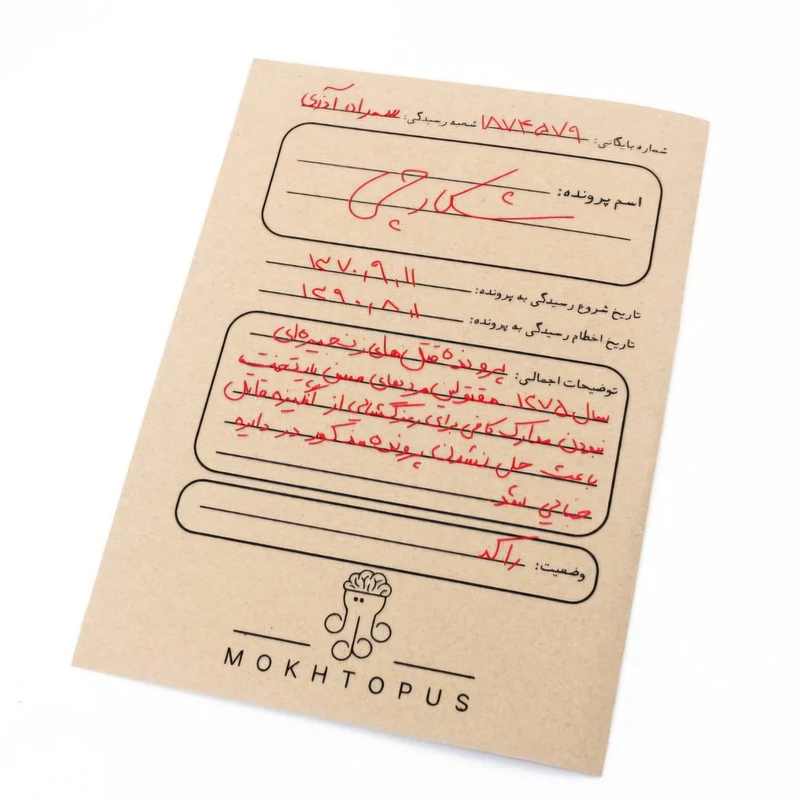 شماره بایگانی: ۱۸۷۴۵۷۹ شعبه رسیدگی: سهراه آذری
اسم پرونده:
شکارچی
تاریخ شروع رسیدگی به پرونده: ۱۳۷۰,۹,۱۱
تاریخ اخطام رسیدگی به پرونده: ۱۳۹۰,۸,۱
توضیحات اجمالی: پرونده قتل های زنجیره ای
سال ۱۳۷۵ مقتولین مردهای مسن پایتخت
نبودن مدارک کافی برای رمزگشایی از انگیزه قاتل
باعث حل نشدن پرونده مذکور در دایره
جنایی شد
وضعیت: راکد
MOKHTOPUS